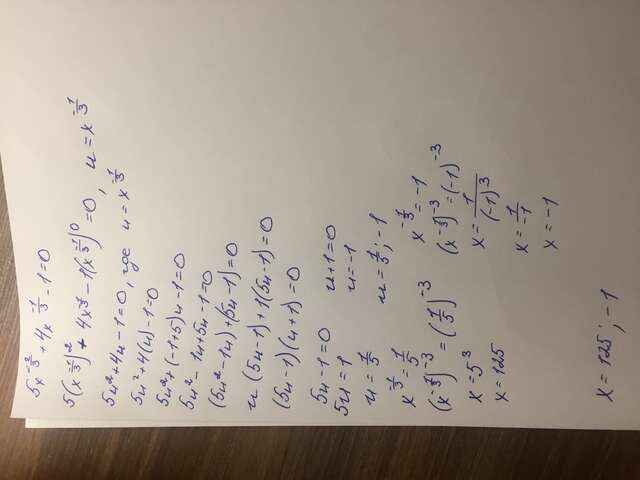 5x^(-2/3) + 4x^(-1/3) - 1 = 0
5(x^(-1/3))^2 + 4x^(-1/3) - 1(x^(-1/3))^0 = 0, u = x^(-1/3)
5u² + 4u - 1 = 0, где u = x^(-1/3)
5u² + 4(u) - 1 = 0
5u² + (-1+5)u - 1 = 0
5u² - 1u + 5u - 1 = 0
(5u² - 1u) + (5u - 1) = 0
u(5u - 1) + 1(5u - 1) = 0
(5u - 1)(u + 1) = 0
5u - 1 = 0
5u = 1
u = 1/5
u + 1 = 0
u = -1
u = 1/5 ; -1
x^(-1/3) = 1/5
(x^(-1/3))^(-3) = (1/5)^(-3)
x = 5³
x = 125
x^(-1/3) = -1
(x^(-1/3))^(-3) = (-1)^(-3)
x = 1/(-1)^3
x = 1/-1
x = -1
x = 125 ; -1